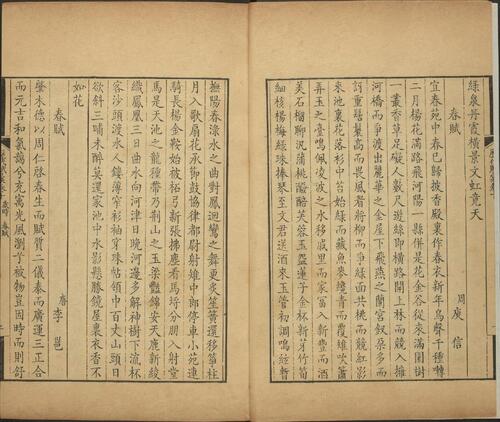 綠泉丹霞橫景文虹竟天
春賦
周庾信
宜春苑中春已歸披香殿裏作春衣新年鳥聲千種囀
二月楊花滿路飛河陽一縣併是花金谷從來滿園樹
一叢香草足礙人數尺遊絲即橫路開上林而競入擁
河橋而爭渡出麗華之金屋下飛燕之蘭宮釵朶多而
訝重髻鬟高而畏風眉將柳而爭綠面共桃而競紅影
來池裏花落衫中苔始綠而藏魚麥纔青而覆雉吹簫
弄玉之臺鳴佩凌波之水移戚里而家富入新豐而酒
美石榴聊泛蒲桃醱醅芙蓉玉盌蓮子金杯新芽竹筍
細核楊梅綠珠捧琴至文君送酒來玉管初調鳴絃暫
撫陽春淥水之曲對鳳迴鸞之舞更炙笙簧還移箏柱
月入歌扇花承節鼓協律都尉射雉中郎停車小苑連
騎長楊金鞍始被柘弓新張拂塵看馬埒分朋入射堂
馬是天池之龍種帶乃荆山之玉梁艷錦安天鹿新綾
織鳳凰三日曲水向河津日晚河邊多解神樹下流杯
客沙頭渡水人鏤薄窄衫袖穿珠帖領巾百丈山頭日
欲斜三晡未醉莫還家池中水影懸勝鏡屋裏衣香不
如花
春賦
唐李邕
肇木德以周仁啓春生而賦質二儀泰而廣運三正合
而元吉和氣藹兮充寓光風瀏兮被物豈因時而則舒
歲時 春賦